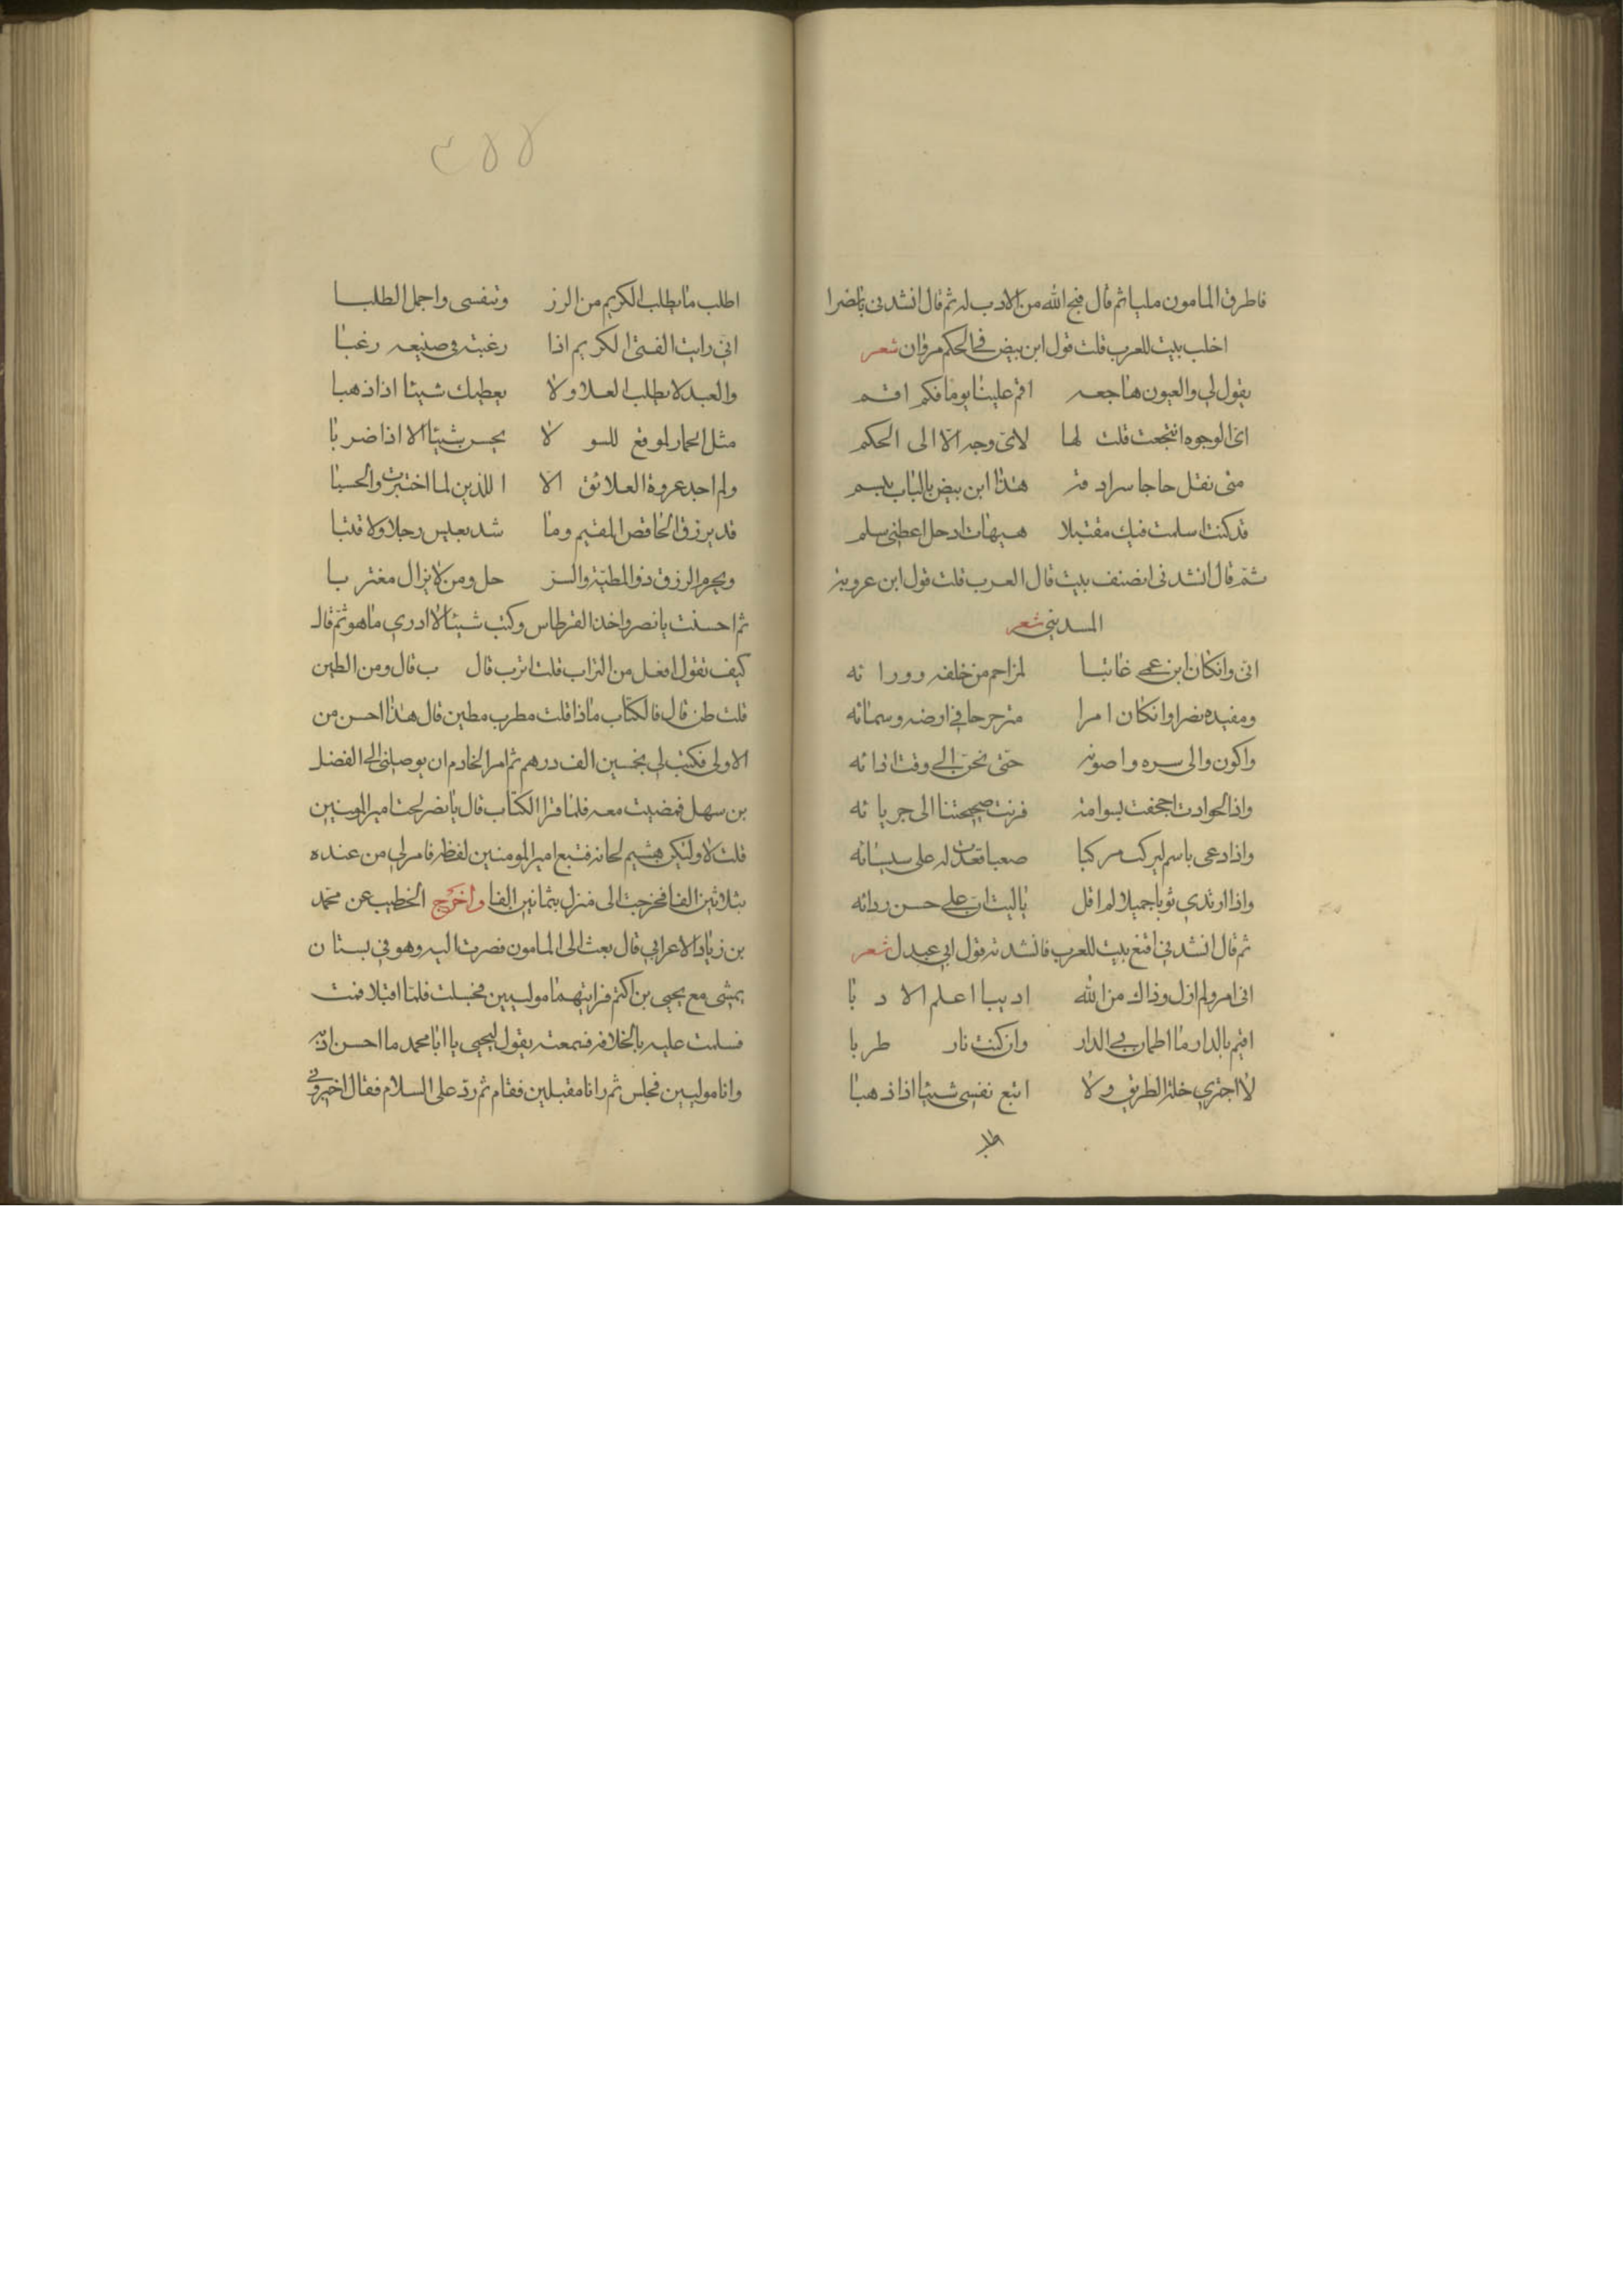 فاطرق المامون مليا ثم قال قبح الله من لا ادب له ثم قال انشدني يا نضرا
اخلب بيت للعرب قلت قول ابن بيض في الحكم مروان شعر
يقول لي والعيون هاجعه اقم علينا يوما فكم اقم
اي الوجوه انتجعت قلت لها لاي وجه الا الى الحكم
متى نقل حاجا سرادقه هذا ابن بيض بالباب يبسم
قد كنت اسلمت فيك مقتبلا هيهات ادخل اعطني سلم
ثم قال انشدني انصف بيت قال العرب قلت قول ابن عروبة
المديني شعر
اني وان كان ابن عمي غائبا لمزاحم من خلفه وورائه
ومفيده نضرا وان كان امرا متزحزحا في ارضه وسمائه
واكون والي سره واصونه حتى نحن الي وقت ادائه
واذا الحوادث اجحفت بسوامه قرنت صحيحتنا الى جربائه
واذا دعى باسم ليركب مركبا صعبا قعدت له على سيسائه
واذا ارتدي ثوبا جميلا لم اقل ياليت ان علي حسن ردائه
ثم قال انشدني اقنع بيت للعرب فانشدته قول ابي عبدل شعر
اني امرو لم ازل وذاك من الله اديبا اعلم الادبا
اقيم بالدار ما اطمان بي الدار وان كنت نار طربا
لا اجتري خلة الطريق ولا اتبع نفسي شيئا اذا ذهبا
اطلب
٣٥٥
اطلب ما يطلب الكريم من الرز وتنفسي واجمل الطلبا
اني رايت الفتى الكريم اذا رغبته في صنيعه رغبا
والعبد لا يطلب العلا ولا يعطيك شيئا اذا ذهبا
مثل الحمار الموقع للسو لا يحسن شيئا الا اذا ضربا
ولم اجد عروة العلائق الا الذين لما اختبرت والحسبا
قد يرزق الخافض المقيم وما شد بعيس رجلا ولا قتبا
ويحرم الرزق ذو المطية والر حل ومن لا يزال مغتربا
ثم احسنت يا نضر واخذ القرطاس وكتب شيئا لا ادري ما هو ثم قال
كيف تقول افعل من التراب قلت اترب قال ب قال ومن الطين
قلت طن قال فالكتاب ماذا قلت مطرب مطين قال هذا احسن من
الاولى فكتب لي بخمسين الف درهم ثم امر الخادم ان يوصلني الى الفضل
بن سهل فمضيت معه فلما قرا الكتاب قال يا نضر لحنت امير المومنين
قلت لا ولكن هشيم لحانه فتبع امير المومنين لفظه فامر لي من عنده
بثلاثين الفا فخرجت الى منزلي بثمانين الفا واخرج الخطيب عن محمد
بن زياد الاعرابي قال بعث الي المامون فصرت اليه وهو في بستان
يمشي مع يحيى بن اكثم فرايتهما موليين فجلست فلما اقبلا قمت
فسلمت عليه بالخلافه فسمعته يقول ليحيى يا ابا محمد ما احسن ادبه
وانا موليين فجلس ثم رانا مقبلين فقام ثم رد على السلام فقال اخبروني